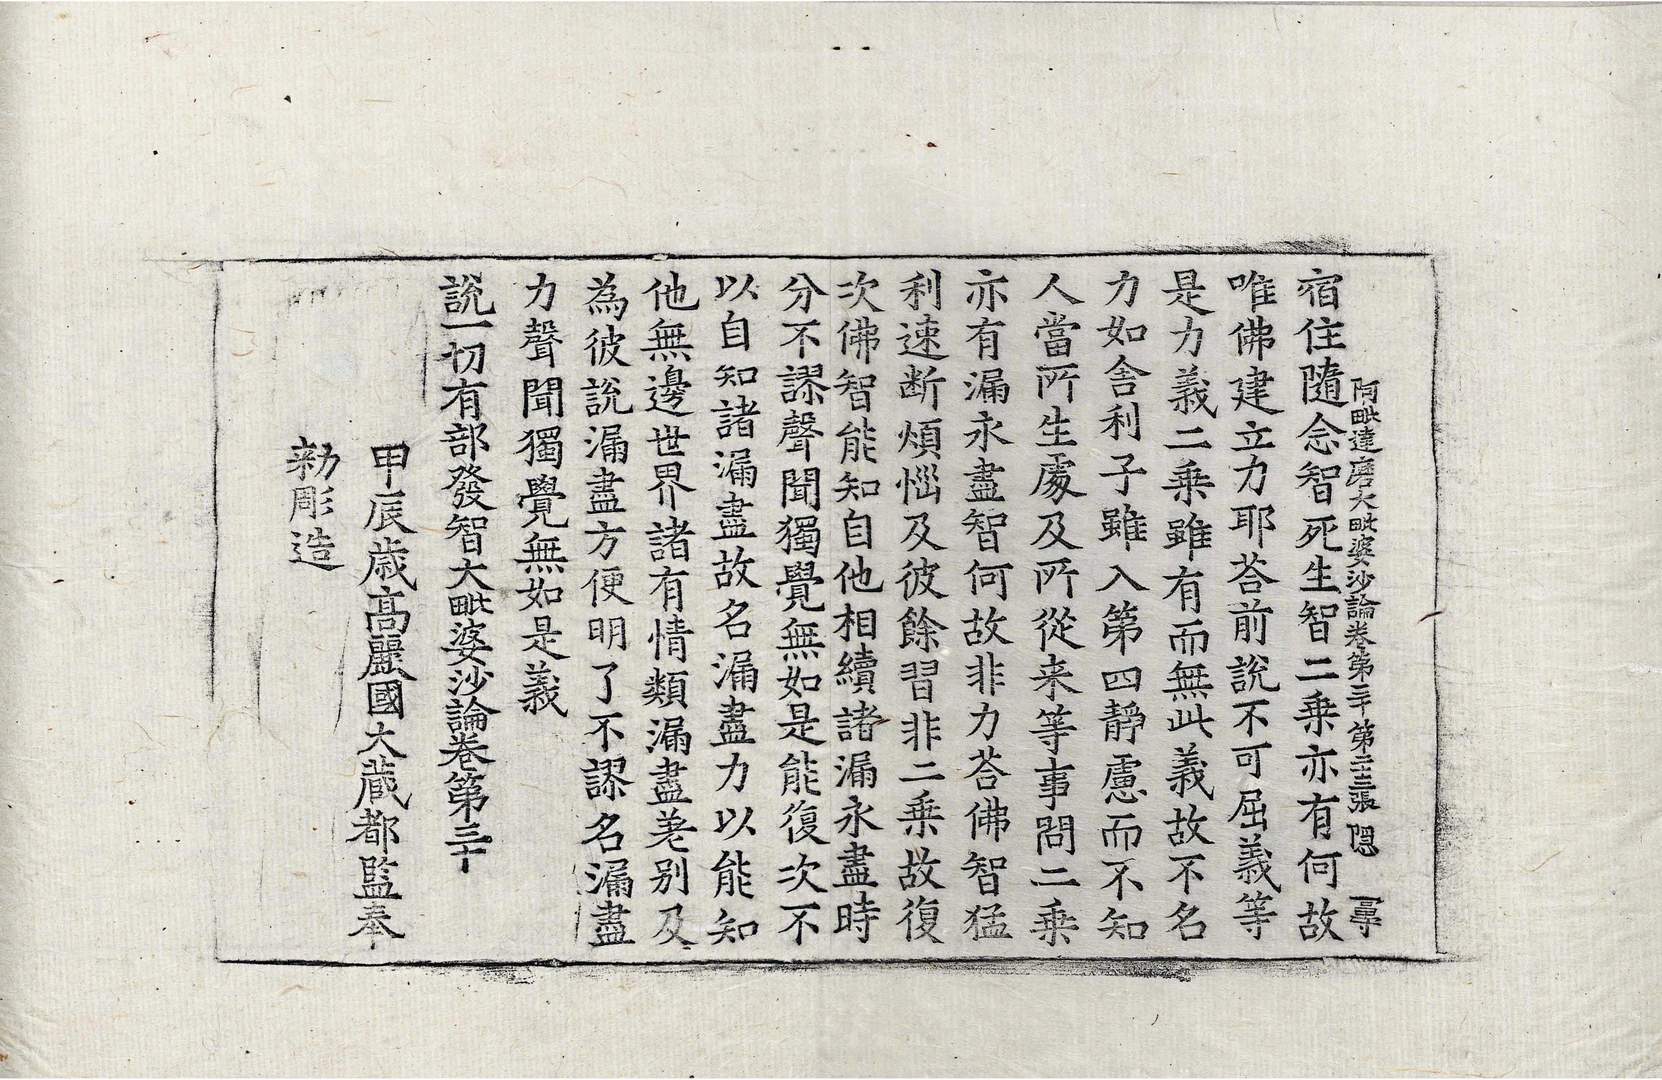 阿毗達磨大毗婆沙論卷第三十 第二十三張 隱
宿住隨念智死生智二乘亦有何故
唯佛建立力耶荅前說不可屈義等
是力義二乘雖有而無此義故不名
力如舍利子雖入第四靜慮而不知
人當所生處及所從来等事問二乘
亦有漏永盡智何故非力荅佛智猛
利速断煩惱及彼餘習非二乘故復
次佛智能知自他相續諸漏永盡時
分不謬聲聞獨覺無如是能復次不
以自知諸漏盡故名漏盡力以能知
他無邊世界諸有情類漏盡差别及
為彼說漏盡方便明了不謬名漏盡
力聲聞獨覺無如是義
說一切有部發智大毗婆沙論卷第三十
甲辰歳高麗國大藏都監奉
勑彫造